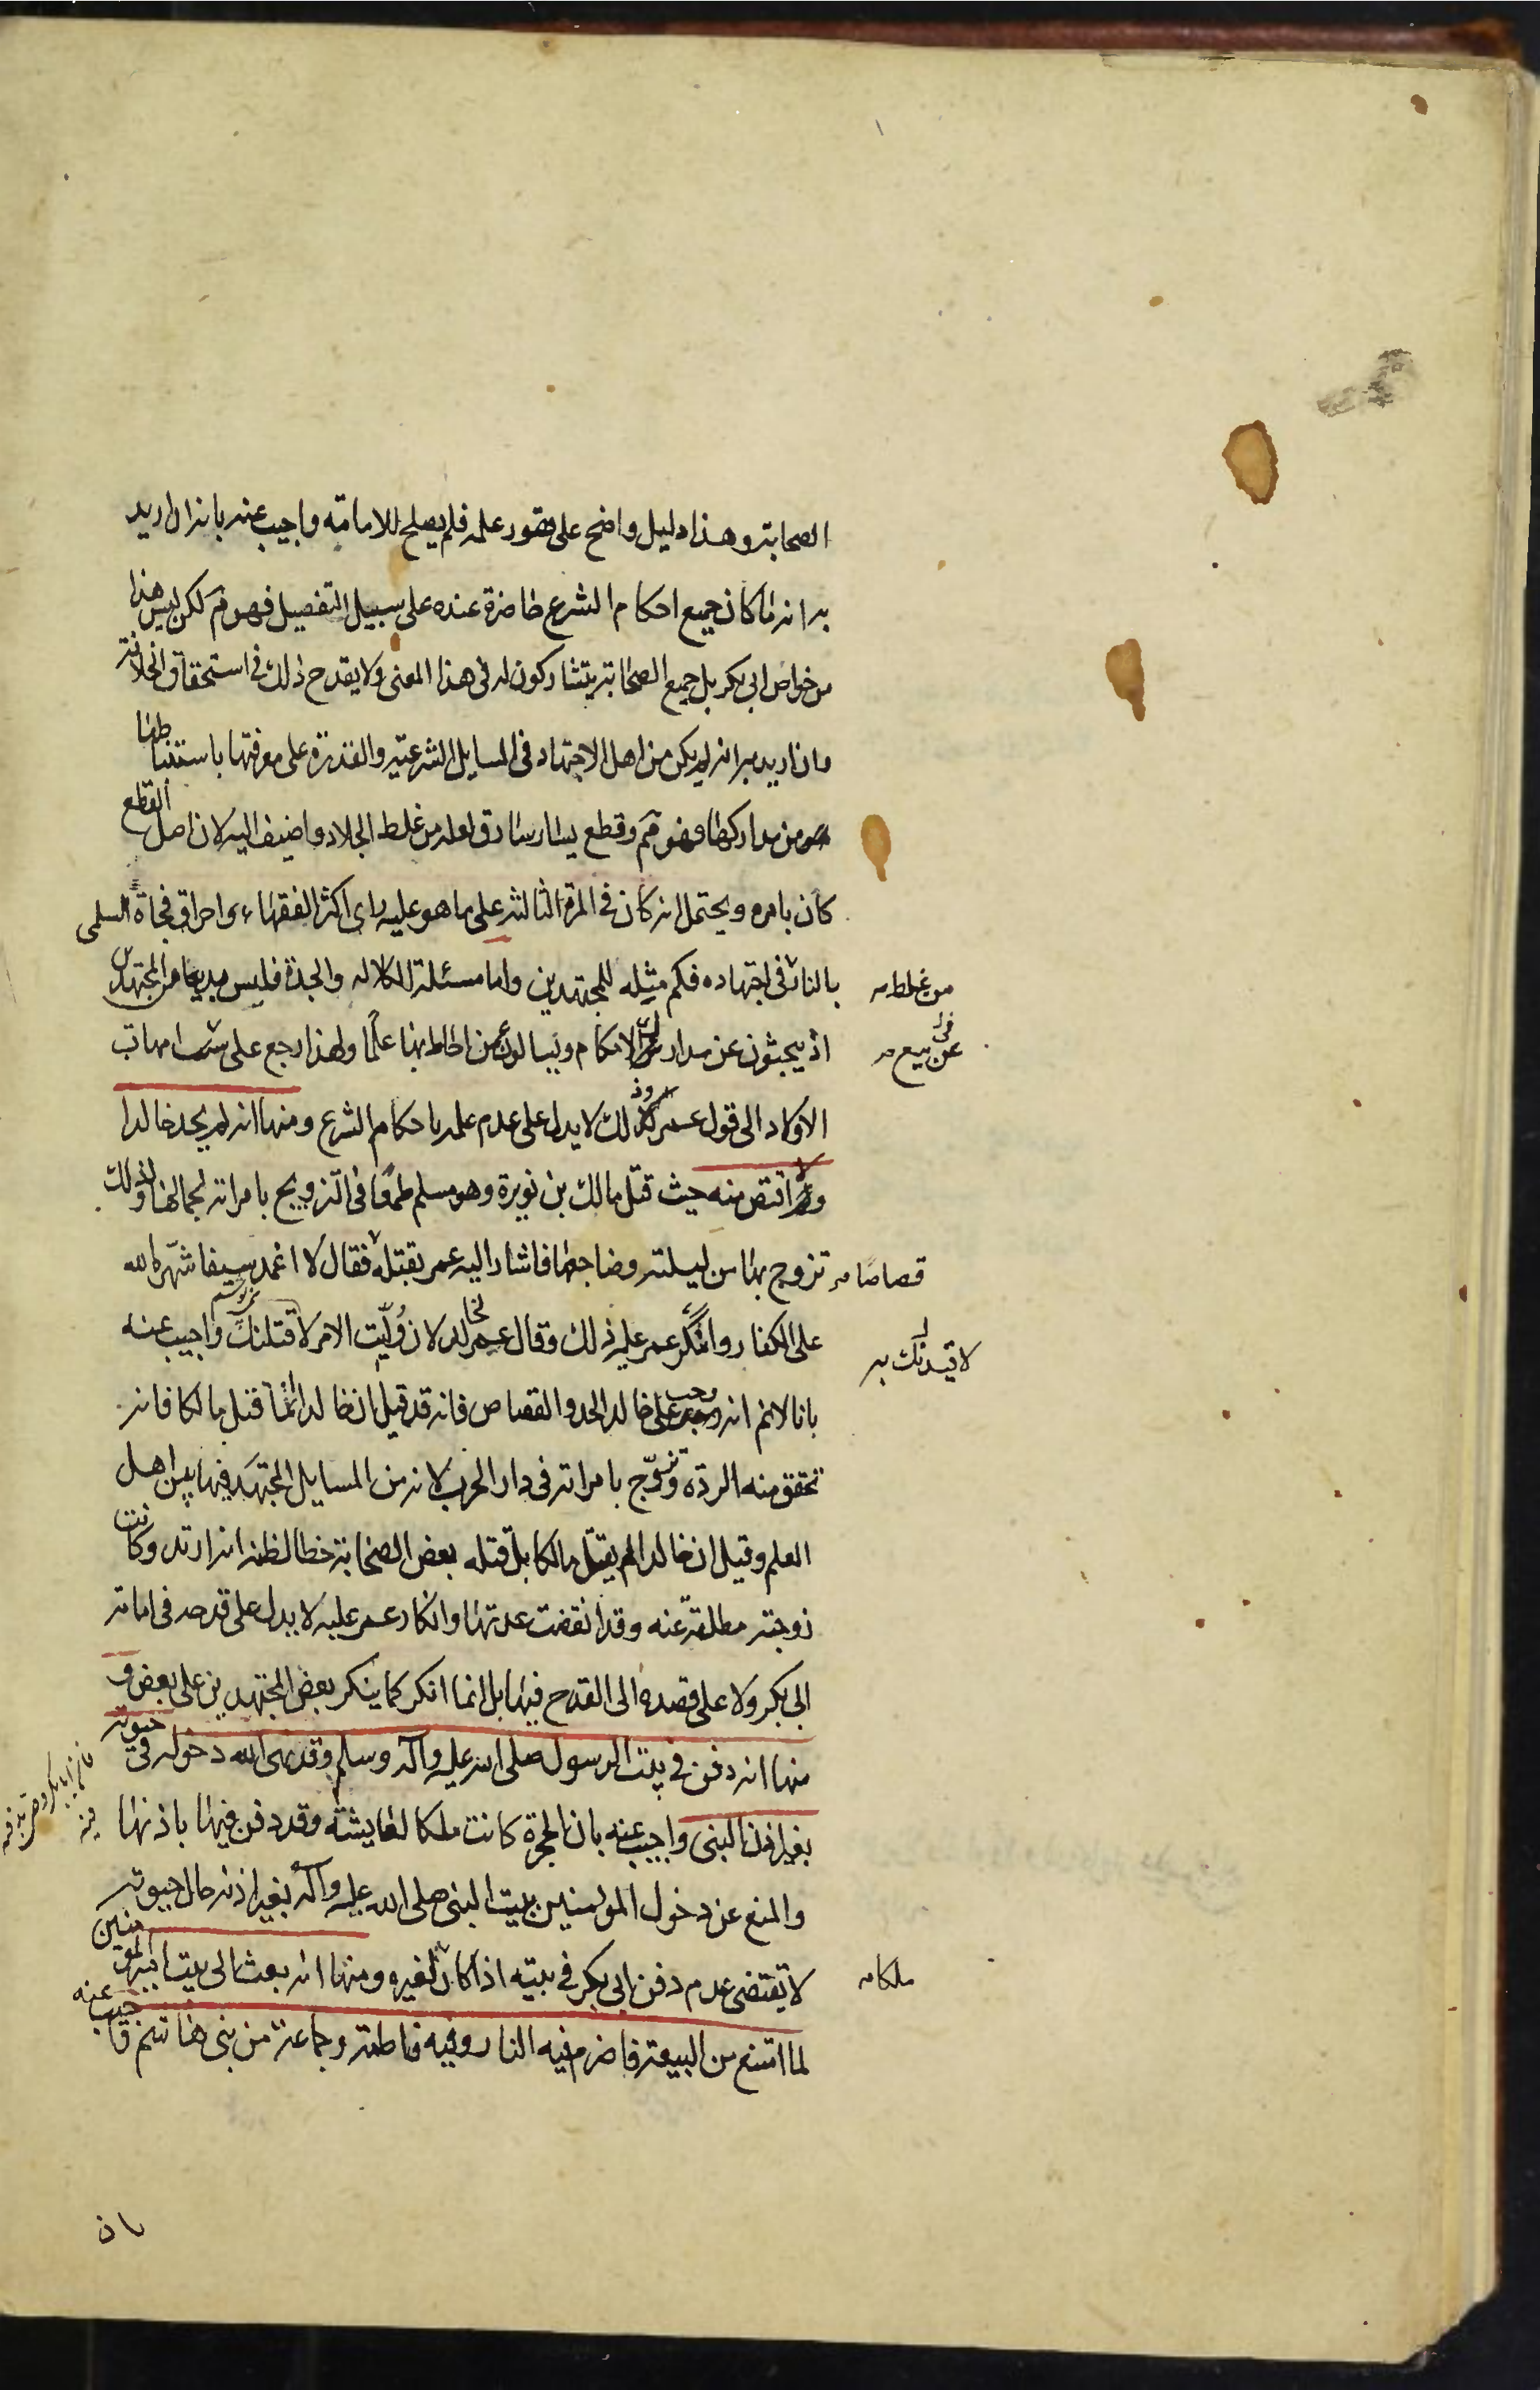 الصحابة وهذا دليل واضح على قصور علمه فلم يصلح للامامة واجيب عنه بانه ان اريد
به انه ما كان جميع احكام الشرع حاضرة عنده على سبيل التفصيل فهو مم لكن ليس هذا
من خواص ابي بكر بل جميع الصحابة يتشاركون له في هذا المعنى ولا يقدح ذلك في استحقاق الخلافة
وان اريد به انه لم يكن من اهل الاجتهاد في المسايل الشرعية والقدرة على معرفتها باستنباطها
من مداركها فهو مم وقطع يسار سارق لعله من غلط الجلاد واضيف اليه لان اصل القطع
كان بامره ويحتمل انه كان في المرة الثالثة على ما هو عليه راى اكثر الفقهاء واحراق فجاة السلمى
بالنار في اجتهاده فكم مثله للمجتهدين واما مسئلة الكلاله والجدة فليس بديعا من المجتهدين
من غلط
اذ يبحثون عن مدارك الاحكام ويسالون من احاط بها علما ولهذا رجع على امهات
عن بيع
الاولاد الى قول عمر وذلك لا يدل على عدم علمه باحكام الشرع ومنها انه لم يحد خالدا
ولا اقتص منه حيث قتل مالك بن نويرة وهو مسلم طمعا في التزويج بامراته لجمالها ولذلك
تزوج بها من ليلته وضاجعها فاشار اليه عمر بقتله فقال لا اغمد سيفا شهره الله
قصاصا
على الكفار وانكر عمر عليه ذلك وقال عمر لخالد لان وليت الامر لاقتلنك واجيب عنه
لاقيدنك به
بانا لانم انه وجب على خالد الحد والقصاص فانه قد قيل ان خالدا انما قتل مالكا فانه
تحقق منه الردة وتزوج بامراته في دار الحرب لانه من المسايل المجتهد فيها بين اهل
العلم وقيل ان خالدا لم يقتل مالكا بل قتله بعض الصحابة خطا لظنه انه ارتد وكانت
زوجته مطلقة عنه وقد انقضت عدتها وانكار عمر عليه لا يدل على قدحه في امامة
ابي بكر ولا على قصده الى القدح فيها بل انما انكر كما ينكر بعض المجتهدين على بعض و
منها انه دفن في بيت الرسول صلى الله عليه وآله وسلم وقد نهى الله دخوله في حيوته
بغير اذن النبى واجيب عنه بان الحجرة كانت ملكا لعايشة وقد دفن فيها باذنها
والمنع عن دخول المومنين بيت النبى صلى الله عليه وآله بغير اذنه حال حيوته
لا تقتضى عدم دفن ابي بكر في بيته اذا كان لغيره ومنها انه بعث الى بيت امير المومنين
ملكا
لما امتنع من البيعة فاضرم فيه النار وفيه فاطمة وجماعة من بنى هاشم واجيب عنه
بان